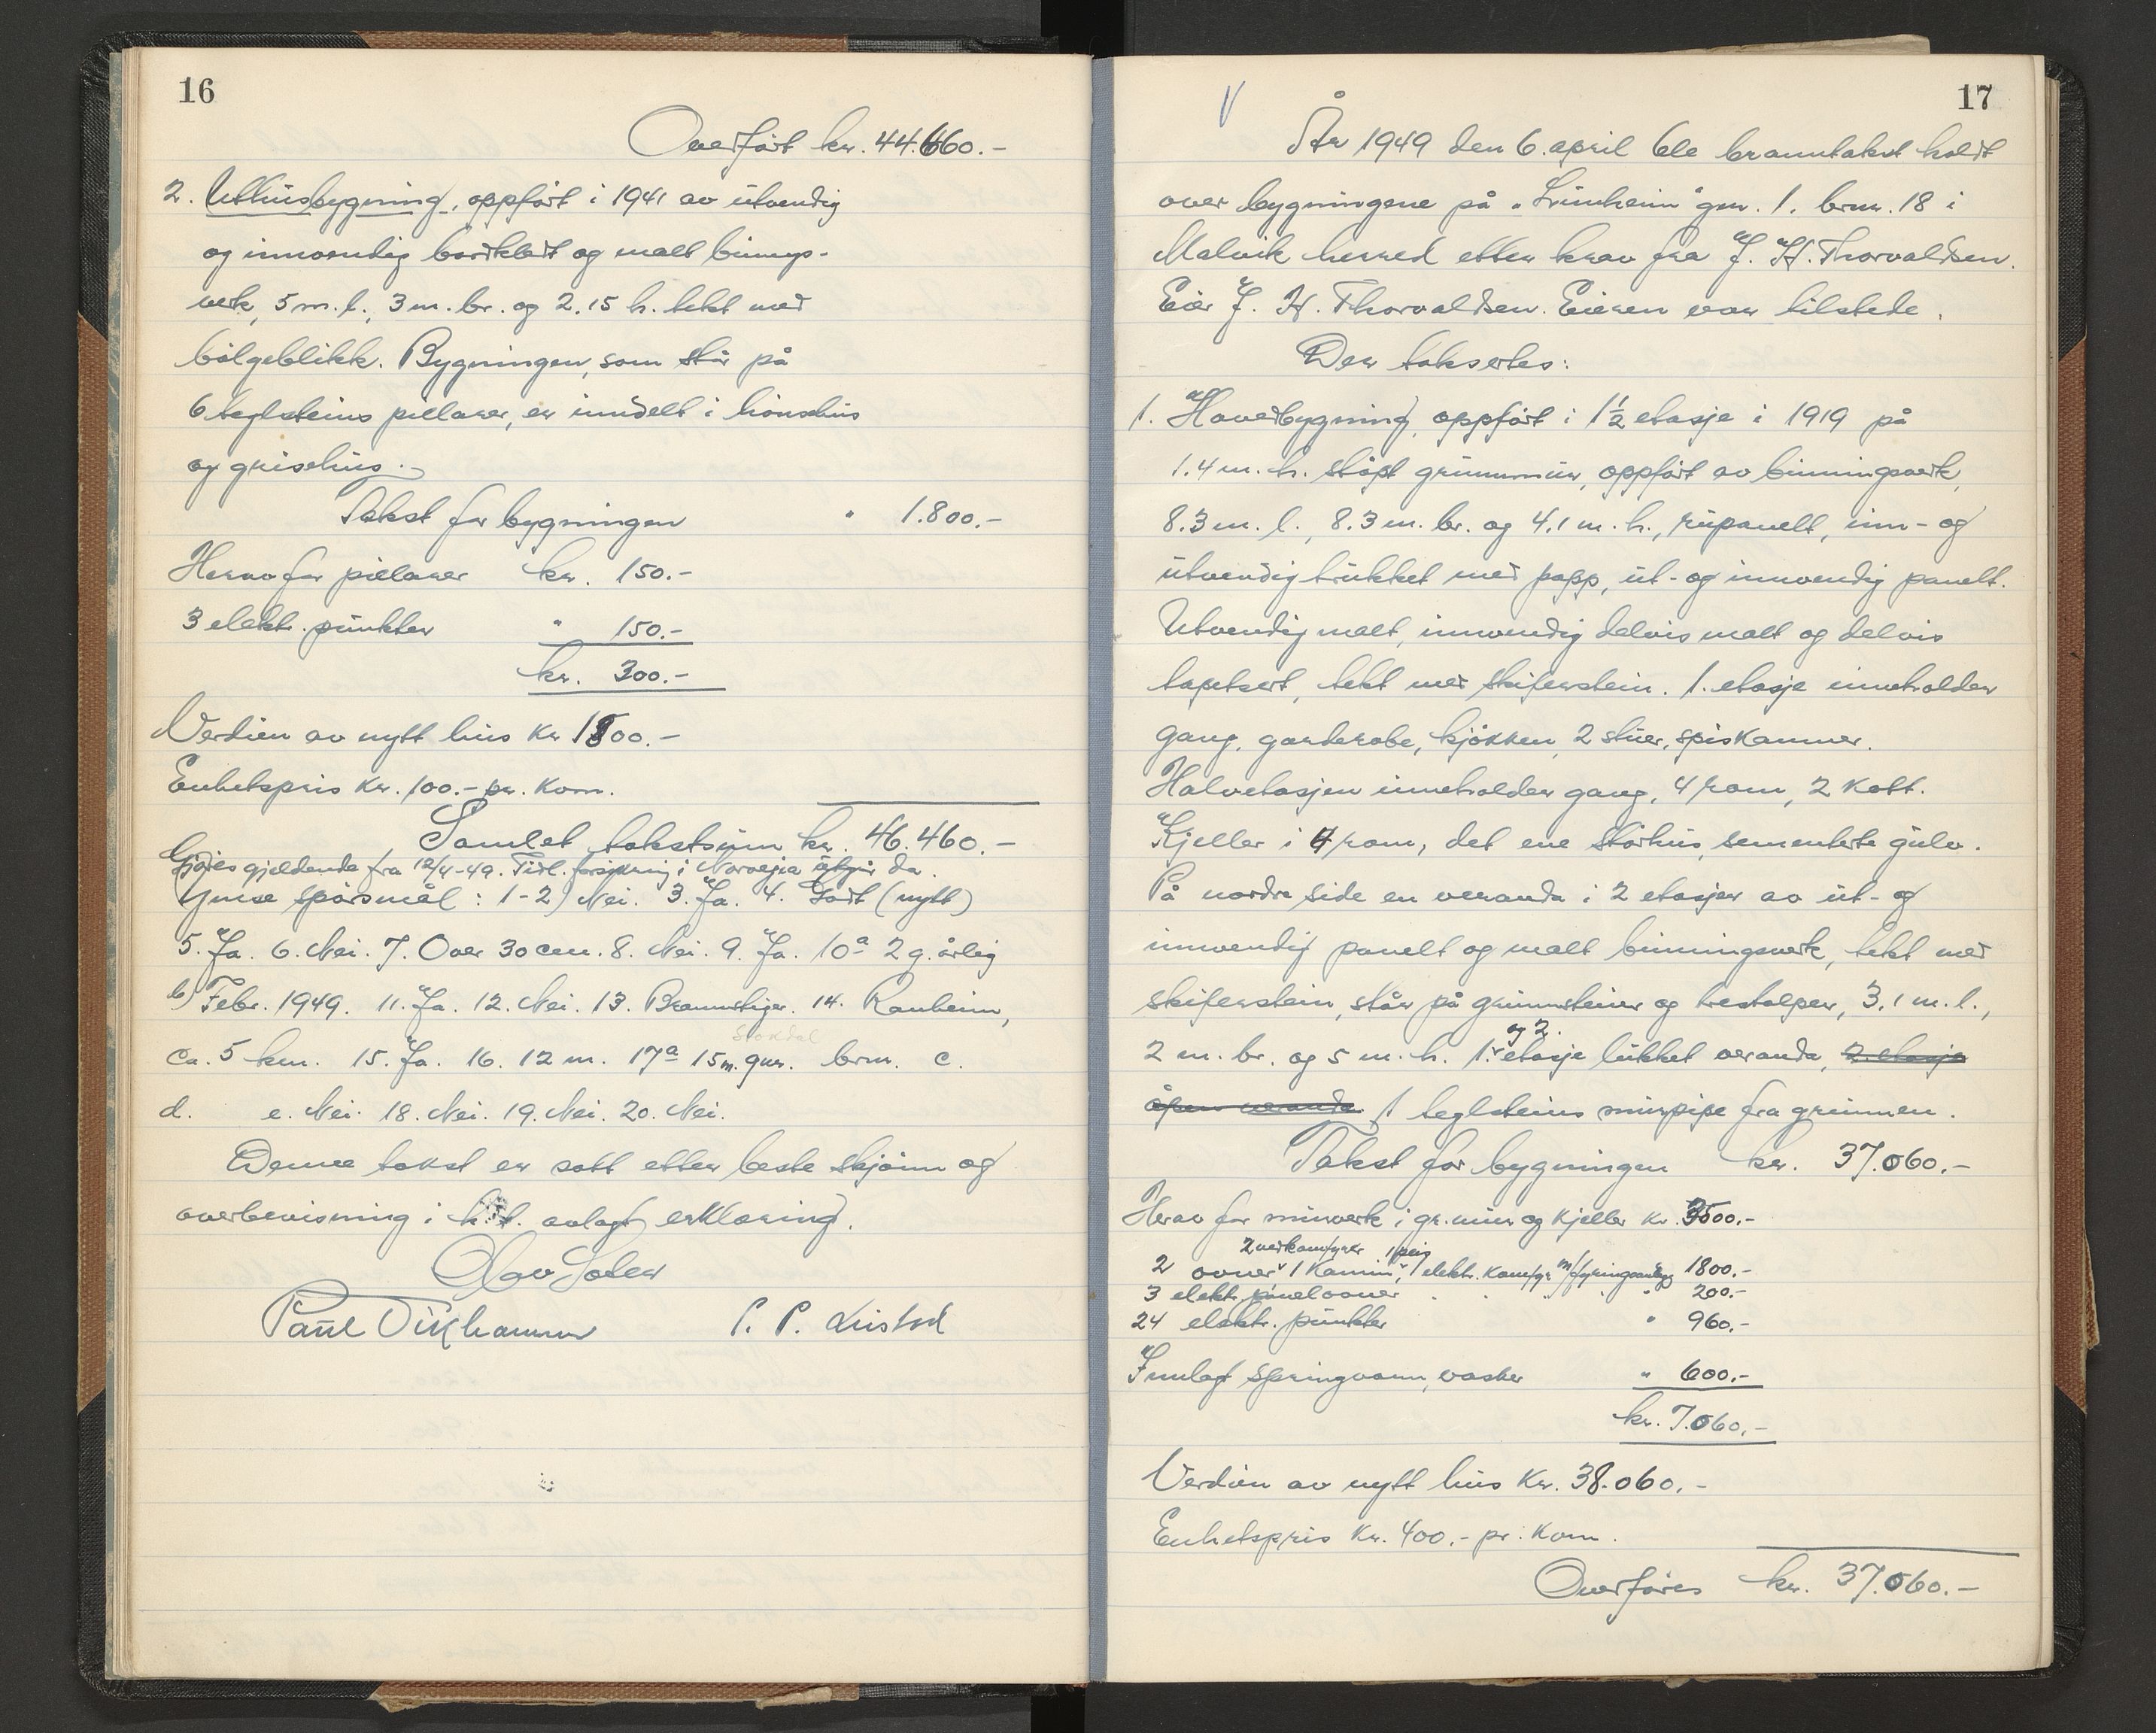 16
Overført kr. 44.660.-
2. Uthusbygning, oppført i 1941 av utvendig
og innvendig bordkledt og malt binnys-
verk, 5 m. l., 3 m. br. og 2.15 h. tekt med
bølgeblikk. Bygningen, som står på
6 teglsteins pillarer, er inndelt i hønsehus
og grisehus.
Takst for bygningen " 1.800.-
Herav for pillarer kr. 150.-
3 elektr. punkter " 150.-
kr. 300.-
Verdien av nytt hus kr 1800.-
Enhetspris kr. 100.- pr. kvm.
Samlet takstsum kr. 46.460.-
Gjøres gjeldende fra 12/4-49. Tidl. forsikring i Norvegia utgår da.
Ymse spørsmål: 1-2) Nei. 3. Ja. 4. Godt (nytt)
5. Ja. 6. Nei. 7. Over 30 cm. 8. Nei. 9. Ja. 10a 2 g. årlig
b) Febr. 1949. 11. Ja. 12. Nei. 13. Brannstiger. 14. Ranheim,
ca. 5 km. 15. Ja. 16. 12 m. 17a 15 m. gnr. brnr. c.
d. e. Nei. 18. Nei. 19. Nei. 20. Nei.
Denne takst er satt etter beste skjønn og
overbevisning i h.t. avlagt erklæring.
Olav
Paul
P. P.
17
År 1949 den 6. april ble branntakst holdt
over bygningene på "Trunheim" gnr. 1. brnr. 18 i
Malvik herred etter krav fra J. H. Thorvaldsen.
Eier J. H. Thorvaldsen. Eieren var tilstede.
Der taksertes:
1. Hovedbygning, oppført i 1½ etasje i 1919 på
1.4 m. h. støpt grunnmur, oppført av binningsverk,
8.3 m. l., 8.3 m. br. og 4.1 m. h., rupanelt, inn- og
utvendig trukket med papp, ut- og innvendig panelt.
Utvendig malt, innvendig delvis malt og delvis
tapetsert, tekt med skiferstein. 1. etasje inneholder
gang, garderobe, kjøkken, 2 stuer, spiskammer.
Halvetasjen inneholder gang, 4 rom, 2 kott.
Kjeller i 4 rom, det ene størhus, sementerte gulv.
På nordre side en veranda i 2 etasjer av ut- og
innvendig panelt og malt binningsverk, tekt med
skiferstein, står på grunnsteiner og trestolper, 3.1 m. l.,
og 2.
2 m. br. og 5 m. h. 1. etasje lukket veranda, 2. etasje
åpen veranda. 1 teglsteins murpipe fra grunnen.
Takst for bygningen kr. 37.060.-
Herav for murverk i gr.mur og kjeller kr. 3500.-
2 vedkomfyrer 1 peis
2 ovner, 1 kamin, 1 elektr. komfyr m/fyringsanlegg 1800.-
3 elektr. panelovner " 200.-
24 elektr. punkter " 960.-
Innlagt springvann, vasker " 600.-
kr. 7.060.-
Verdien av nytt hus kr. 38.060.-
Enhetspris kr. 400.- pr. kvm.
Overføres kr. 37.060.-